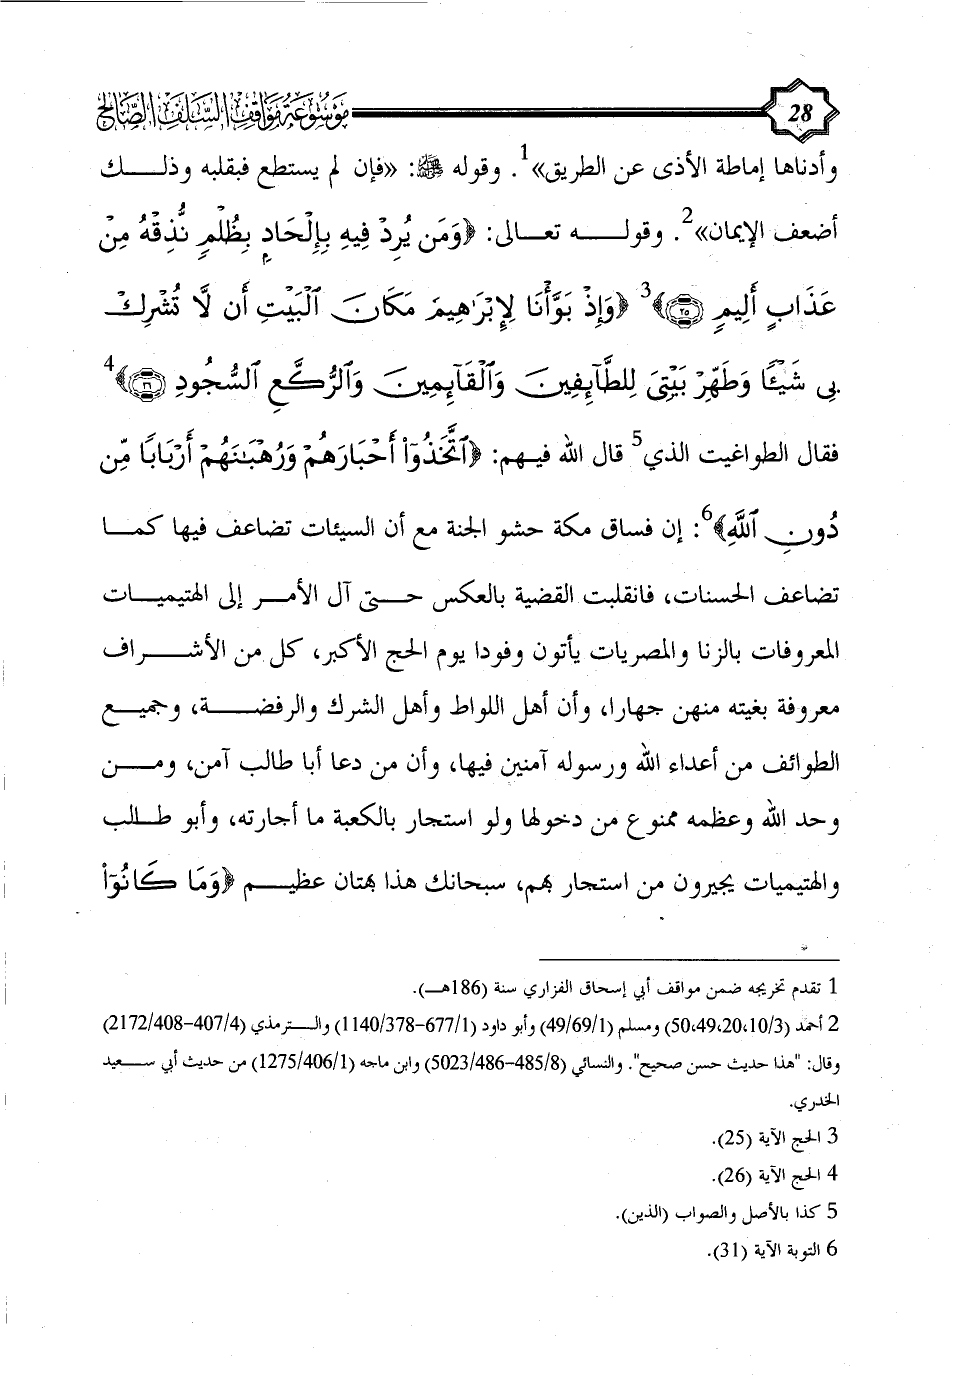 28
موسوعة مواقف السلف الصالح
وأدناها إماطة الأذى عن الطريق»1. وقوله ﷺ: «فإن لم يستطع فبقلبه وذلـــك
أضعف الإيمان»2. وقولـــــه تعــالى: ﴿وَمَن يُرِدْ فِيهِ بِإِلْحَادٍ بِظُلْمٍ نُّذِقْهُ مِنْ
عَذَابٍ أَلِيمٍ ۝٢٥﴾3 ﴿وَإِذْ بَوَّأْنَا لِإِبْرَٰهِيمَ مَكَانَ ٱلْبَيْتِ أَن لَّا تُشْرِكْ
بِى شَيْـًٔا وَطَهِّرْ بَيْتِىَ لِلطَّآئِفِينَ وَٱلْقَآئِمِينَ وَٱلرُّكَّعِ ٱلسُّجُودِ ۝٢٦﴾4
فقال الطواغيت الذي5 قال الله فيـهم: ﴿ٱتَّخَذُوٓا۟ أَحْبَارَهُمْ وَرُهْبَـٰنَهُمْ أَرْبَابًا مِّن
دُونِ ٱللَّهِ﴾6: إن فساق مكة حشو الجنة مع أن السيئات تضاعف فيها كمـــا
تضاعف الحسنات، فانقلبت القضية بالعكس حـــتى آل الأمــر إلى الهتيميــات
المعروفات بالزنا والمصريات يأتون وفودا يوم الحج الأكبر، كل من الأشـــــراف
معروفة بغيته منهن جهارا، وأن أهل اللواط وأهل الشرك والرفضـــــة، وجميــع
الطوائف من أعداء الله ورسوله آمنين فيها، وأن من دعا أبا طالب آمن، ومـــن
وحد الله وعظمه ممنوع من دخولها ولو استجار بالكعبة ما أجارته، وأبو طــالب
والهتيميات يجيرون من استجار بهم، سبحانك هذا بهتان عظيـــم ﴿وَمَا كَانُوٓا۟
1 تقدم تخريجه ضمن مواقف أبي إسحاق الفزاري سنة (186هــ).
2 أحمد (10/3،20،49،50) ومسلم (49/69/1) وأبو داود (1140/378-677/1) والـــترمذي (2172/408-407/4)
وقال: "هذا حديث حسن صحيح". والنسائي (5023/486-485/8) وابن ماجه (1275/406/1) من حديث أبي ســـعيد
الخدري.
3 الحج الآية (25).
4 الحج الآية (26).
5 كذا بالأصل والصواب (الذين).
6 التوبة الآية (31).